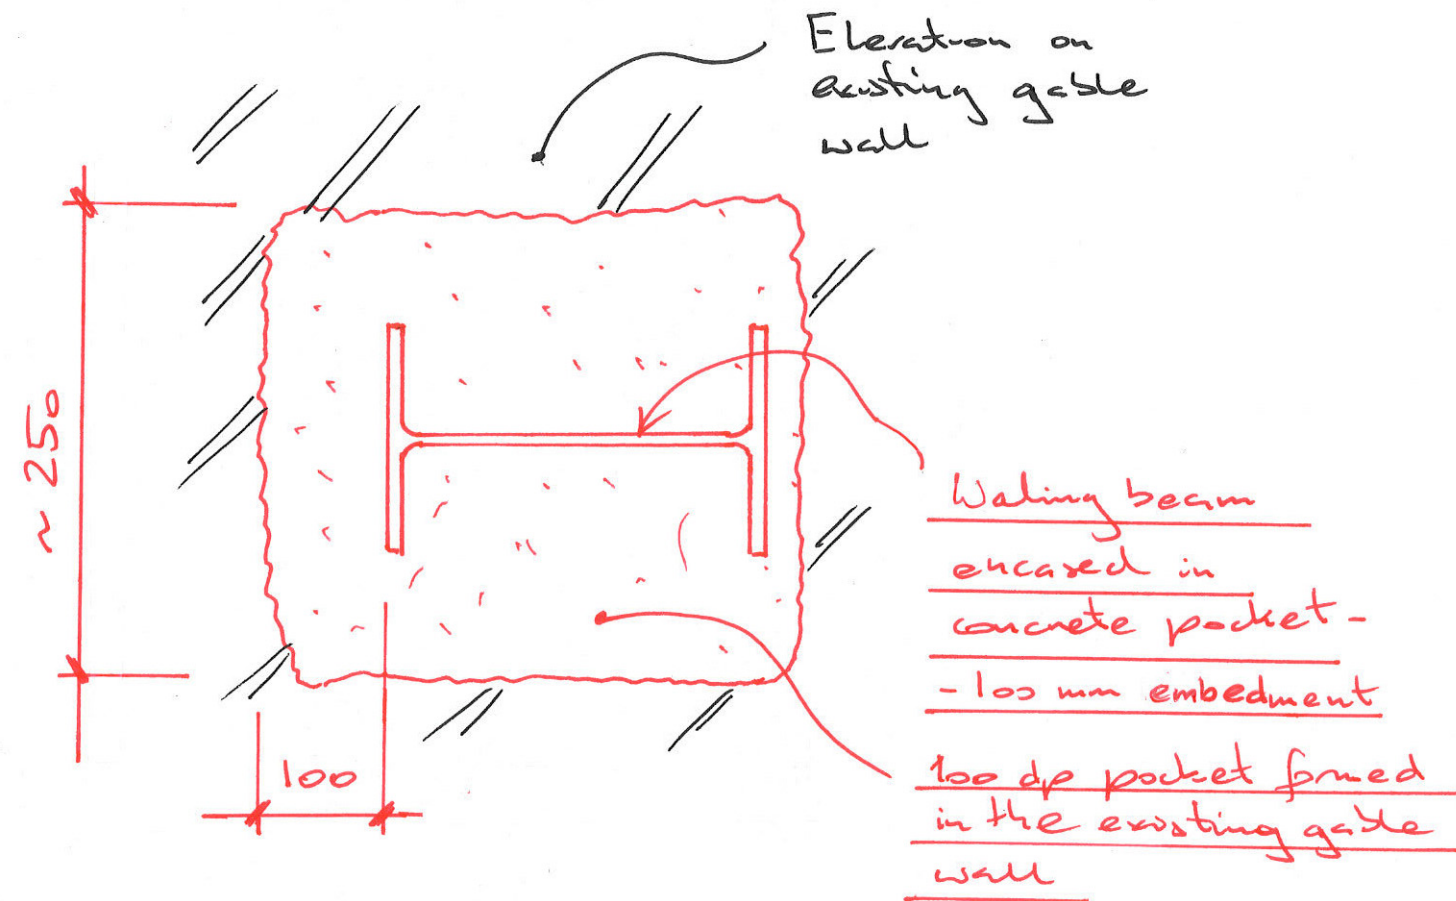 Elevation on
existing gable
wall
~ 250
Waling beam
encased in
concrete pocket -
- 100 mm embedment
100
100 dp pocket formed
in the existing gable
wall